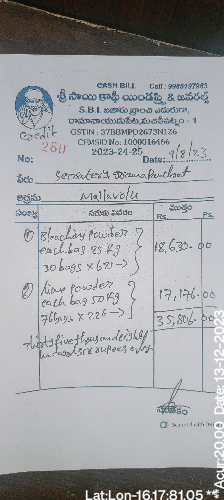 CASH BILL Cell : 9963197863
శ్రీ సాయి కాళ్ళీ యిండస్ట్రీ & జనరల్స్
S.B.I. బజారు బ్రాంచి ఎదురుగా,
రామానాయుడుపేట, మచిలీపట్నం - 1
GSTIN : 37BBMPD2673N1Z6
CFMSID No: 1000016466
Credit
280
2023-24-25
No: Date: 9/8/23
పేరు Grama Panchayat
అడ్రసు Mallavolu
సంఖ్య సరుకు వివరం మొత్తం
Rs. Ps.
① Bleaching powder
each bag 25 Kg
30 bags × 621 → 18,630.00
② Lime powder
each bag 50 Kg
76 bags × 226 → 17,176.00
35,806.00
thirty five thousand eight
hundred six rupees only
సంతకం
Scanned with
Lat:Lon-16.17:81.05
**Acur:20.00 Date:13-12-2023